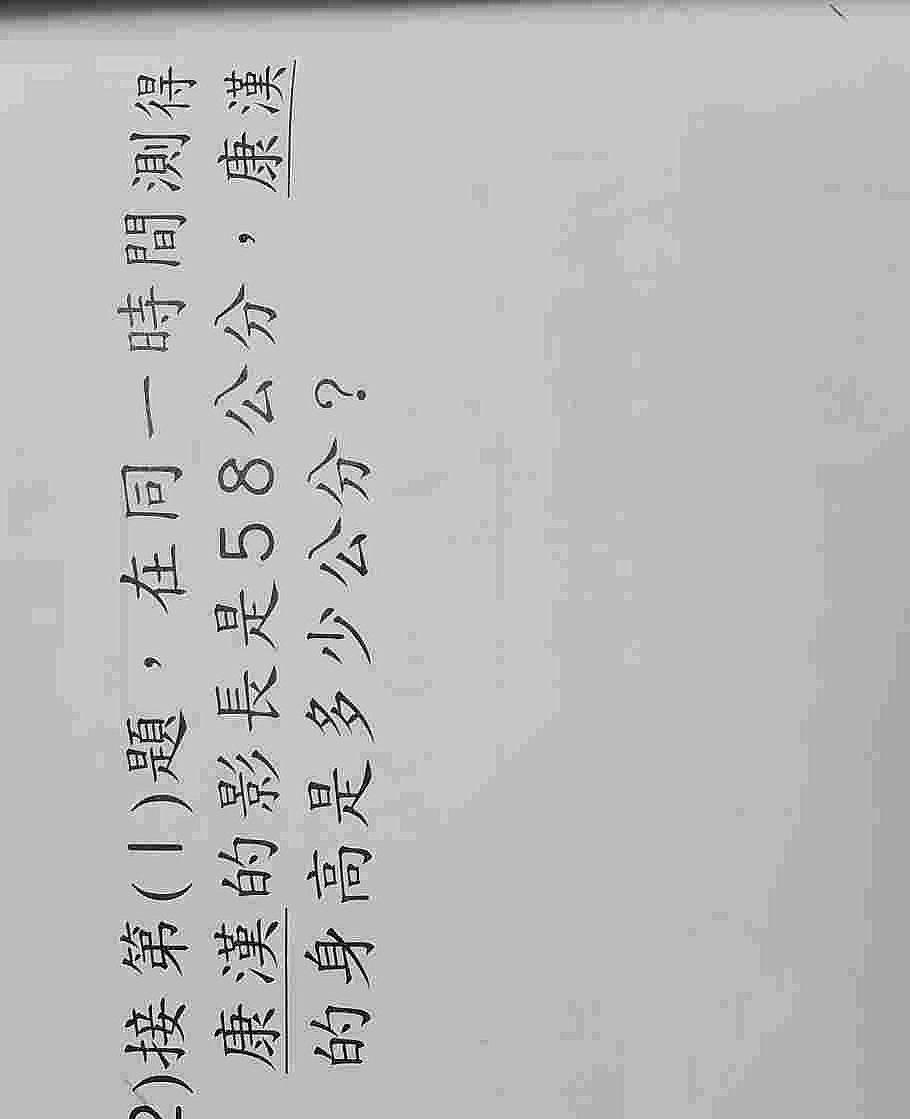 2)接第(1)題，在同一時間測得
康漢的影長是58公分，康漢
的身高是多少公分？